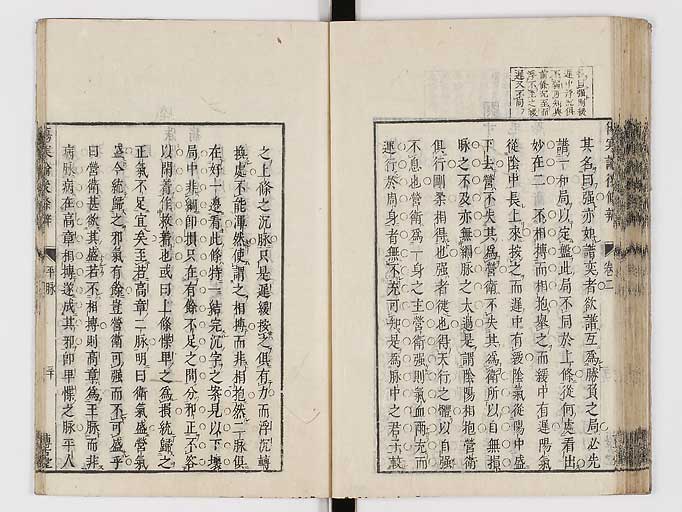 其名曰强亦如譜奕者欲譜互爲勝負之局必先
譜一和局以定盤此局不同於上條從何處看出
妙在二不相搏而相抱擧之而緩中有遲陽氣
從陰中長上來按之而遲中有緩陰氣從陽中盛
下去營不失其爲營衛不失其爲衛所以自無損
脉之不及亦無綱脉之太過是謂陰陽相抱營衛
俱行剛柔相得也强者健也得天行之體以自强
不息也營衛爲一身之主營衛强則氣血兩充而
運行於周身者無不充可知是爲脉中之君子較
卷二
之上條之沉脉只是遲緩按之俱有力而浮沉轉
換處不能渾然使謂之相搏而非相抱然二脉俱
在好一邊看此條特一結完沉字之案見以下壞
局中非綱卽損只在有餘不足之間分邪正不容
以閒着作救着也或曰上條慄卑之爲損統歸之
正氣不足宜矣至若高章二脉明曰衛氣盛營氣
盛今統歸之邪氣有餘豈營衛可强而不可盛乎
曰營衛甚欲其盛若不相搏則高章爲王脉而非
病脉病在高章相搏遂成其邪卽卑慄之脉平人
平脉